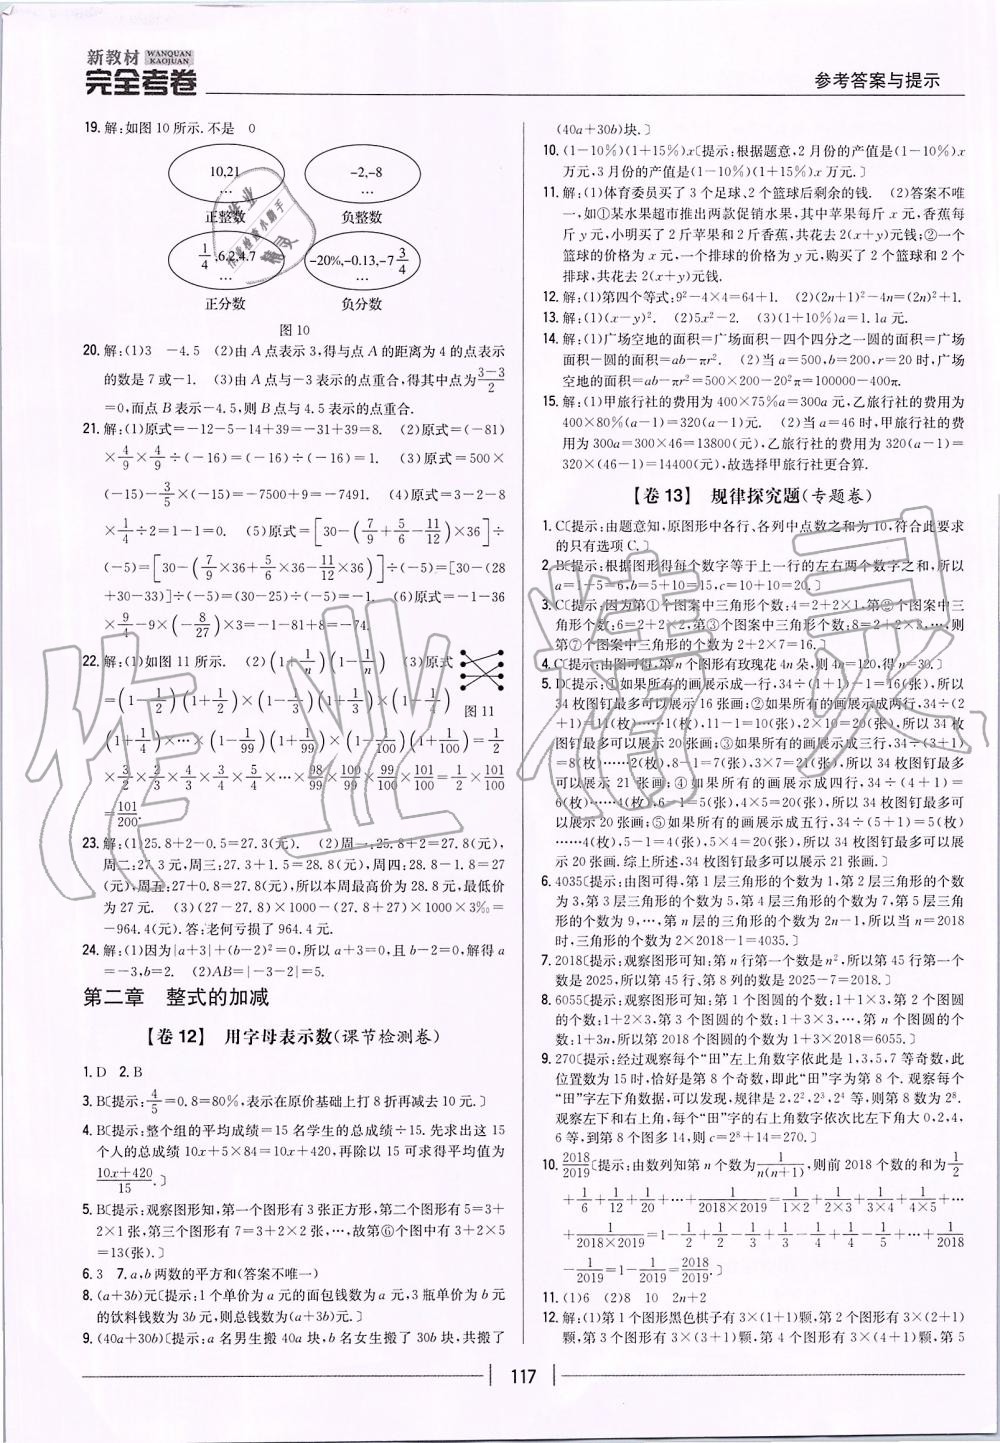 新教材 WANQUAN KAOJUAN
完全考卷
参考答案与提示
19. 解:如图10所示.不是 0
10,21
…
正整数
-2,-8
…
负整数
1/4,6.2,4.7
…
正分数
-20%,-0.13,-7 3/4
…
负分数
图10
20. 解:(1)3 -4.5 (2)由A点表示3,得与点A的距离为4的点表示
的数是7或-1. (3)由A点与-3表示的点重合,得其中点为(3-3)/2
=0,而点B表示-4.5,则B点与4.5表示的点重合.
21. 解:(1)原式=-12-5-14+39=-31+39=8. (2)原式=(-81)
×4/9×4/9÷(-16)=(-16)÷(-16)=1. (3)原式=500×
(-15)-3/5×(-15)=-7500+9=-7491. (4)原式=3-2-8
×1/4÷2=1-1=0. (5)原式=[30-(7/9+5/6-11/12)×36]÷
(-5)=[30-(7/9×36+5/6×36-11/12×36)]÷(-5)=[30-(28
+30-33)]÷(-5)=(30-25)÷(-5)=-1. (6)原式=-1-36
×9/4-9×(-8/27)×3=-1-81+8=-74.
22. 解:(1)如图11所示. (2)(1+1/n)(1-1/n) (3)原式
=(1-1/2)(1+1/2)×(1-1/3)(1+1/3)×(1-1/4)
图11
(1+1/4)×…×(1-1/99)(1+1/99)×(1-1/100)(1+1/100)=1/2
×3/2×2/3×4/3×3/4×5/4×…×98/99×100/99×99/100×101/100=1/2×101/100
=101/200.
23. 解:(1)25.8+2-0.5=27.3(元). (2)周一:25.8+2=27.8(元),
周二:27.3元,周三:27.3+1.5=28.8(元),周四:28.8-1.8=27
(元),周五:27+0.8=27.8(元),所以本周最高价为28.8元,最低价
为27元. (3)(27-27.8)×1000-(27.8+27)×1000×3‰=
-964.4(元).答:老何亏损了964.4元.
24. 解:(1)因为|a+3|+(b-2)²=0,所以a+3=0,且b-2=0,解得a
=-3,b=2. (2)AB=|-3-2|=5.
第二章 整式的加减
【卷12】 用字母表示数(课节检测卷)
1. D 2. B
3. B〔提示:4/5=0.8=80%,表示在原价基础上打8折再减去10元.〕
4. B〔提示:整个组的平均成绩=15名学生的总成绩÷15.先求出这15
个人的总成绩10x+5×84=10x+420,再除以15可求得平均值为
(10x+420)/15.〕
5. B〔提示:观察图形知,第一个图形有3张正方形,第二个图形有5=3+
2×1张,第三个图形有7=3+2×2张,…,故第⑥个图中有3+2×5
=13(张).〕
6. 3 7. a,b两数的平方和(答案不唯一)
8. (a+3b)元〔提示:1个单价为a元的面包钱数为a元,3瓶单价为b元
的饮料钱数为3b元,则总钱数为(a+3b)元.〕
9. (40a+30b)〔提示:a名男生搬40a块,b名女生搬了30b块,共搬了
(40a+30b)块.〕
10. (1-10%)(1+15%)x〔提示:根据题意,2月份的产值是(1-10%)x
万元,3月份的产值是(1-10%)(1+15%)x万元.〕
11. 解:(1)体育委员买了3个足球、2个篮球后剩余的钱. (2)答案不唯
一,如①某水果超市推出两款促销水果,其中苹果每斤x元,香蕉每
斤y元,小明买了2斤苹果和2斤香蕉,共花去2(x+y)元钱;②一个
篮球的价格为x元,一个排球的价格为y元,购买了2个篮球和2个
排球,共花去2(x+y)元钱.
12. 解:(1)第四个等式:9²-4×4=64+1. (2)(2n+1)²-4n=(2n)²+1.
13. 解:(1)(x-y)². (2)5x²-2. (3)(1+10%)a=1.1a元.
14. 解:(1)广场空地的面积=广场面积-四个四分之一圆的面积=广场
面积-圆的面积=ab-πr². (2)当a=500,b=200,r=20时,广场
空地的面积=ab-πr²=500×200-20²π=100000-400π.
15. 解:(1)甲旅行社的费用为400×75%a=300a元,乙旅行社的费用为
400×80%(a-1)=320(a-1)元. (2)当a=46时,甲旅行社的费
用为300a=300×46=13800(元),乙旅行社的费用为320(a-1)=
320×(46-1)=14400(元),故选择甲旅行社更合算.
【卷13】 规律探究题(专题卷)
1. C〔提示:由题意知,原图形中各行、各列中点数之和为10,符合此要求
的只有选项C.〕
2. B〔提示:根据图形得每个数字等于上一行的左右两个数字之和,所以
a=1+5=6,b=5+10=15,c=10+10=20.〕
3. C〔提示:因为第①个图案中三角形个数:4=2+2×1,第②个图案中三
角形个数:6=2+2×2,第③个图案中三角形个数:8=2+2×3,…,则
第⑦个图案中三角形的个数为2+2×7=16.〕
4. C〔提示:由图可得,第n个图形有玫瑰花4n朵,则4n=120,得n=30.〕
5. D〔提示:①如果所有的画展示成一行,34÷(1+1)-1=16(张),所以
34枚图钉最多可以展示16张画;②如果所有的画展示成两行,34÷(2
+1)=11(枚)……1(枚),11-1=10(张),2×10=20(张),所以34枚
图钉最多可以展示20张画;③如果所有的画展示成三行,34÷(3+1)
=8(枚)……2(枚),8-1=7(张),3×7=21(张),所以34枚图钉最多可
以展示21张画;④如果所有的画展示成四行,34÷(4+1)=
6(枚)……4(枚),6-1=5(张),4×5=20(张),所以34枚图钉最多可
以展示20张画;⑤如果所有的画展示成五行,34÷(5+1)=5(枚)
……4(枚),5-1=4(张),5×4=20(张),所以34枚图钉最多可以展
示20张画.综上所述,34枚图钉最多可以展示21张画.〕
6. 4035〔提示:由图可得,第1层三角形的个数为1,第2层三角形的个数
为3,第3层三角形的个数为5,第4层三角形的个数为7,第5层三角
形的个数为9,…,第n层的三角形的个数为2n-1,所以当n=2018
时,三角形的个数为2×2018-1=4035.〕
7. 2018〔提示:观察图形可知:第n行第一个数是n²,所以第45行第一个
数是2025,所以第45行、第8列的数是2025-7=2018.〕
8. 6055〔提示:观察图形可知:第1个图圆的个数:1+1×3,第2个图圆
的个数:1+2×3,第3个图圆的个数:1+3×3,…,第n个图圆的个
数:1+3n,所以第2018个图圆的个数为1+3×2018=6055.〕
9. 270〔提示:经过观察每个“田”左上角数字依此是1,3,5,7等奇数,此
位置数为15时,恰好是第8个奇数,即此“田”字为第8个.观察每个
“田”字左下角数据,可以发现,规律是2,2²,2³,2⁴等,则第8数为2⁸.
观察左下和右上角,每个“田”字的右上角数字依次比左下角大0,2,4,
6等,到第8个图多14,则c=2⁸+14=270.〕
10. 2018/2019〔提示:由数列知第n个数为1/(n(n+1)),则前2018个数的和为1/2
+1/6+1/12+1/20+…+1/(2018×2019)=1/(1×2)+1/(2×3)+1/(3×4)+1/(4×5)+…
+1/(2018×2019)=1-1/2+1/2-1/3+1/3-1/4+1/4-1/5+…+1/2018
-1/2019=1-1/2019=2018/2019.〕
11. (1)6 (2)8 10 2n+2
12. 解:(1)第1个图形黑色棋子有3×(1+1)颗,第2个图形有3×(2+1)
颗,第3个图形有3×(3+1)颗,第4个图形有3×(4+1)颗,第5
117
作业精灵